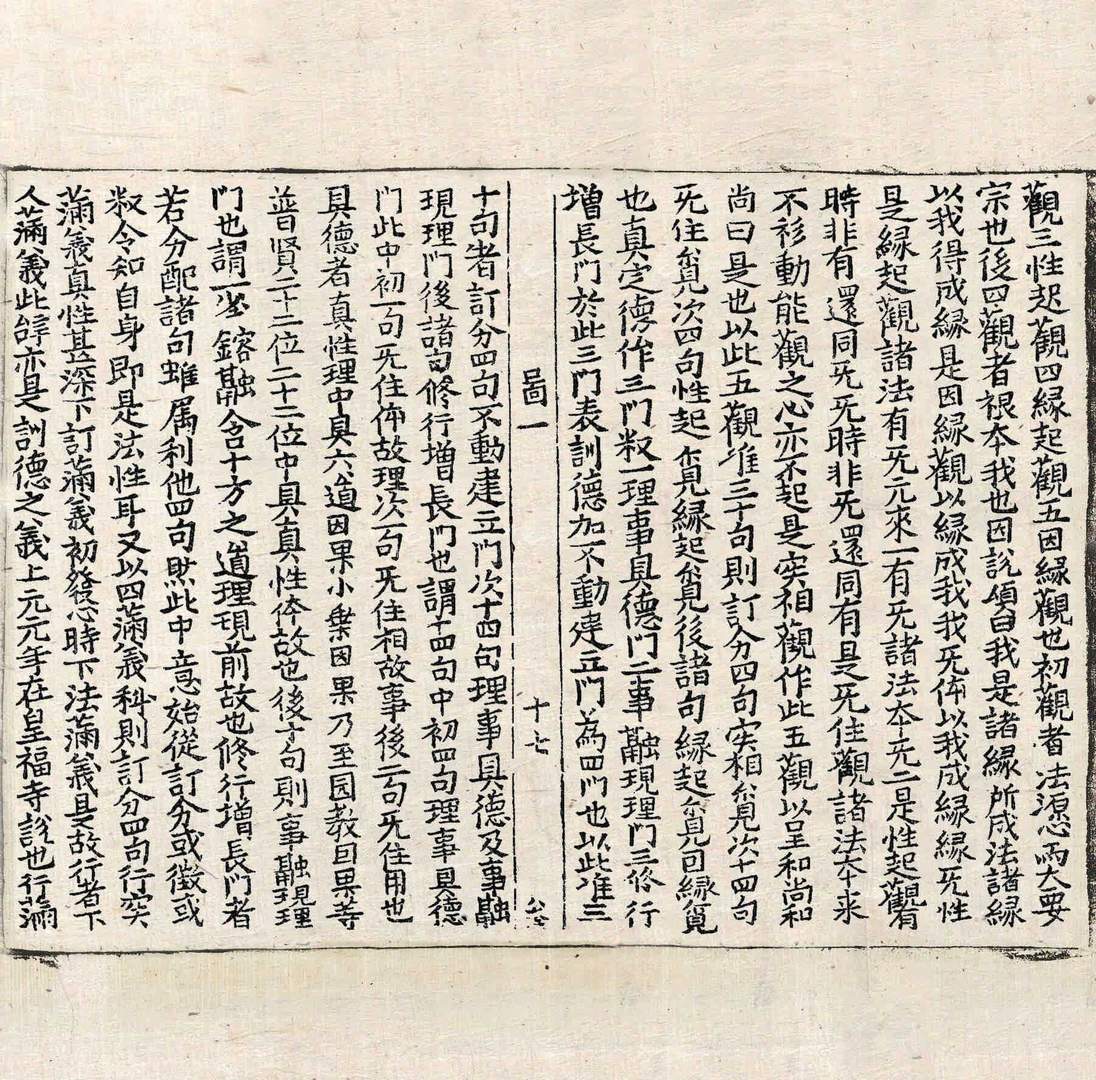 觀三性起觀四縁起觀五因縁觀也初觀者法源心両大要
宗也後四觀者根夲我也因說頌曰我是諸縁所成法諸縁
以我得成縁是因縁觀以縁成我我无体以我成縁縁无性
是縁起觀諸法有无元來一有无諸法夲无二是性起觀有
時非有還同无无時非无還同有是无住觀諸法夲來
不移動能觀之心亦不起是实相觀作此五觀以呈和尚和
尚曰是也以此五觀准三十句則訂分四句实相覌次十四句
无住覌次四句性起覌縁起覌後諸句縁起覌回縁覌
也真定德作三門叙一理事具德門二事融現理門三修行
增長門於此三門表訓德加一不動建立門為四門也以此准三
啚一
十七
十句者訂分四句不動建立門次十四句理事具德及事融
現理門後諸句修行增長門也謂十四句中初四句理事具德
門此中初一句无住体故理次一句无住相故事後二句无住用也
具德者真性理中具六道因果小乗因果乃至圓教因果等
普賢二十二位二十二位中具真性体故也後十句則事融現理
門也謂一塵鎔融含十方之道理現前故也修行增長門者
若分配諸句雖属利他四句然此中意始從訂分或徵或
叙令知自身即是法性耳又以四滿義科則訂分四句行实
滿義真性甚深下訂滿義初發心時下法滿義是故行者下
人滿義此辝亦是訓德之義上元元年在皇福寺說也行滿